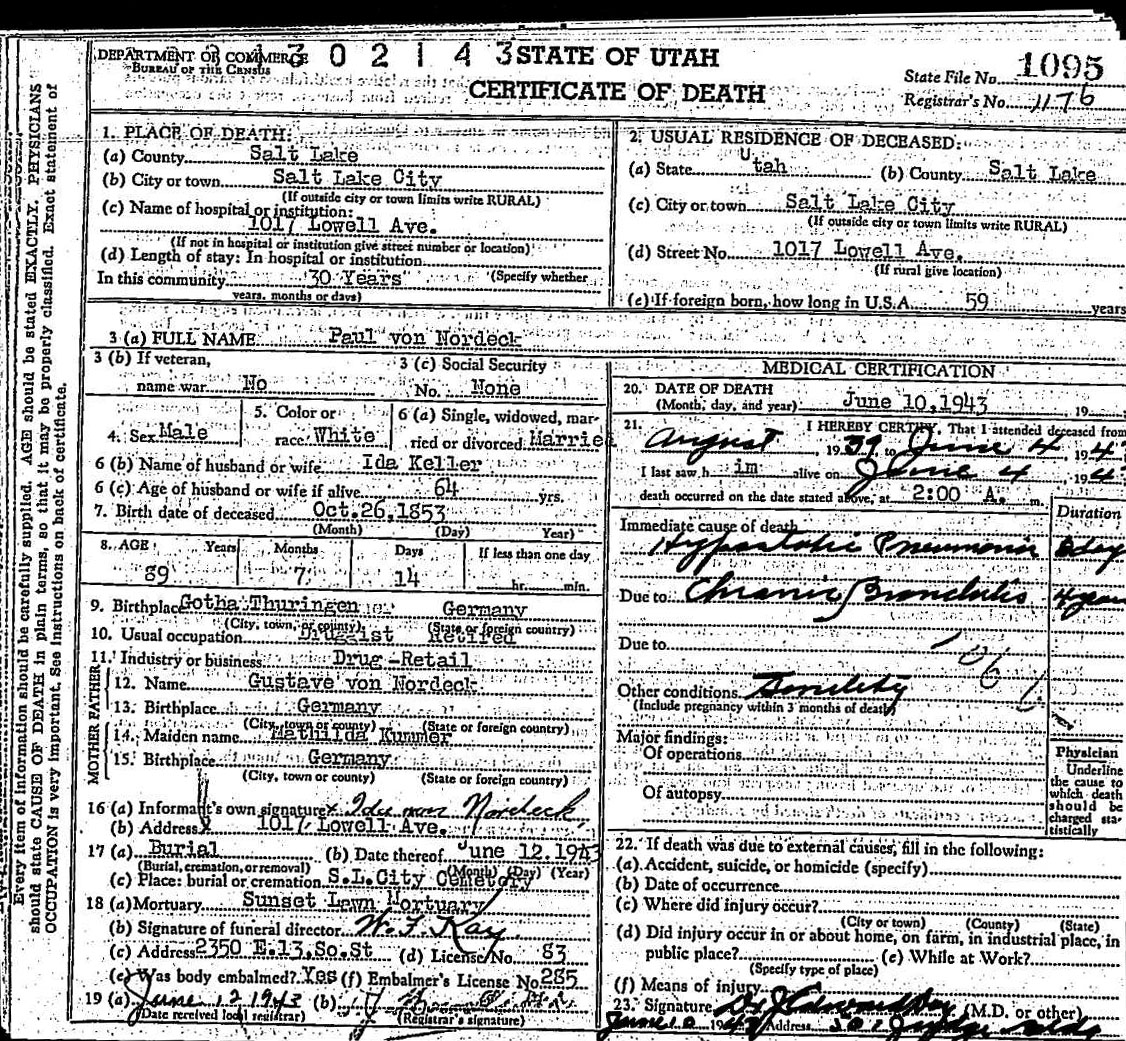 Every item of information should be carefully supplied. AGE should be stated EXACTLY. PHYSICIANS
should state CAUSE OF DEATH in plain terms, so that it may be properly classified. Exact statement of
OCCUPATION is very important. See instructions on back of certificate.
DEPARTMENT OF COMMERCE
BUREAU OF THE CENSUS
302143
STATE OF UTAH
CERTIFICATE OF DEATH
State File No. 1095
Registrar's No. 1176
1. PLACE OF DEATH:
(a) County Salt Lake
(b) City or town Salt Lake City
(If outside city or town limits write RURAL)
(c) Name of hospital or institution:
1017 Lowell Ave.
(If not in hospital or institution give street number or location)
(d) Length of stay: In hospital or institution
In this community 30 Years (Specify whether
years, months or days)
2. USUAL RESIDENCE OF DECEASED:
(a) State Utah (b) County Salt Lake
(c) City or town Salt Lake City
(If outside city or town limits write RURAL)
(d) Street No. 1017 Lowell Ave.
(If rural give location)
(e) If foreign born, how long in U.S.A. 59 years
3 (a) FULL NAME Paul von Nordeck
3 (b) If veteran,
name war No
3 (c) Social Security
No. None
4. Sex Male
5. Color or
race White
6 (a) Single, widowed, mar-
ried or divorced Married
6 (b) Name of husband or wife Ida Keller
6 (c) Age of husband or wife if alive 64 yrs.
7. Birth date of deceased Oct.26,1853
(Month) (Day) Year)
8. AGE Years Months Days If less than one day
89 7 14 hr. min.
9. Birthplace Gotha Thuringen Germany
(City, town, or county) (State or foreign country)
10. Usual occupation Druggist Retired
11. Industry or business Drug-Retail
FATHER
12. Name Gustave von Nordeck
13. Birthplace Germany
(City, town or county) (State or foreign country)
MOTHER
14. Maiden name Mathilda Kummer
15. Birthplace Germany
(City, town or county) (State or foreign country)
16 (a) Informant's own signature x Ida von Nordeck
(b) Address x 1017 Lowell Ave.
17 (a) Burial (b) Date thereof June 12,1943
(Burial, cremation, or removal) (Month) (Day) (Year)
(c) Place: burial or cremation S.L.City Cemetery
18 (a) Mortuary Sunset Lawn Mortuary
(b) Signature of funeral director W. F. Kay
(c) Address 2350 E.13,So.St (d) License No. 83
(e) Was body embalmed? Yes (f) Embalmer's License No. 285
19 (a) June 12 1943 (b)
(Date received local registrar) (Registrar's signature)
MEDICAL CERTIFICATION
20. DATE OF DEATH
(Month, day, and year) June 10,1943 19
21. I HEREBY CERTIFY, That I attended deceased from
August, 1939, to June 4, 194
I last saw him alive on June 4, 194
death occurred on the date stated above, at 2:00 A. m.
Duration
Immediate cause of death
Hypostatic Pneumonia day
Due to Chronic Bronchitis 4 year
Due to
106
Other conditions Senility
(Include pregnancy within 3 months of death)
Major findings:
Of operations
Of autopsy
Physician
Underline
the cause to
which death
should be
charged sta-
tistically
22. If death was due to external causes, fill in the following:
(a) Accident, suicide, or homicide (specify)
(b) Date of occurrence
(c) Where did injury occur?
(City or town) (County) (State)
(d) Did injury occur in or about home, on farm, in industrial place, in
public place? (e) While at Work?
(Specify type of place)
(f) Means of injury
23. Signature Dr J Edward Day (M.D. or other)
June 10 1943 Address 301 Judge Bldg